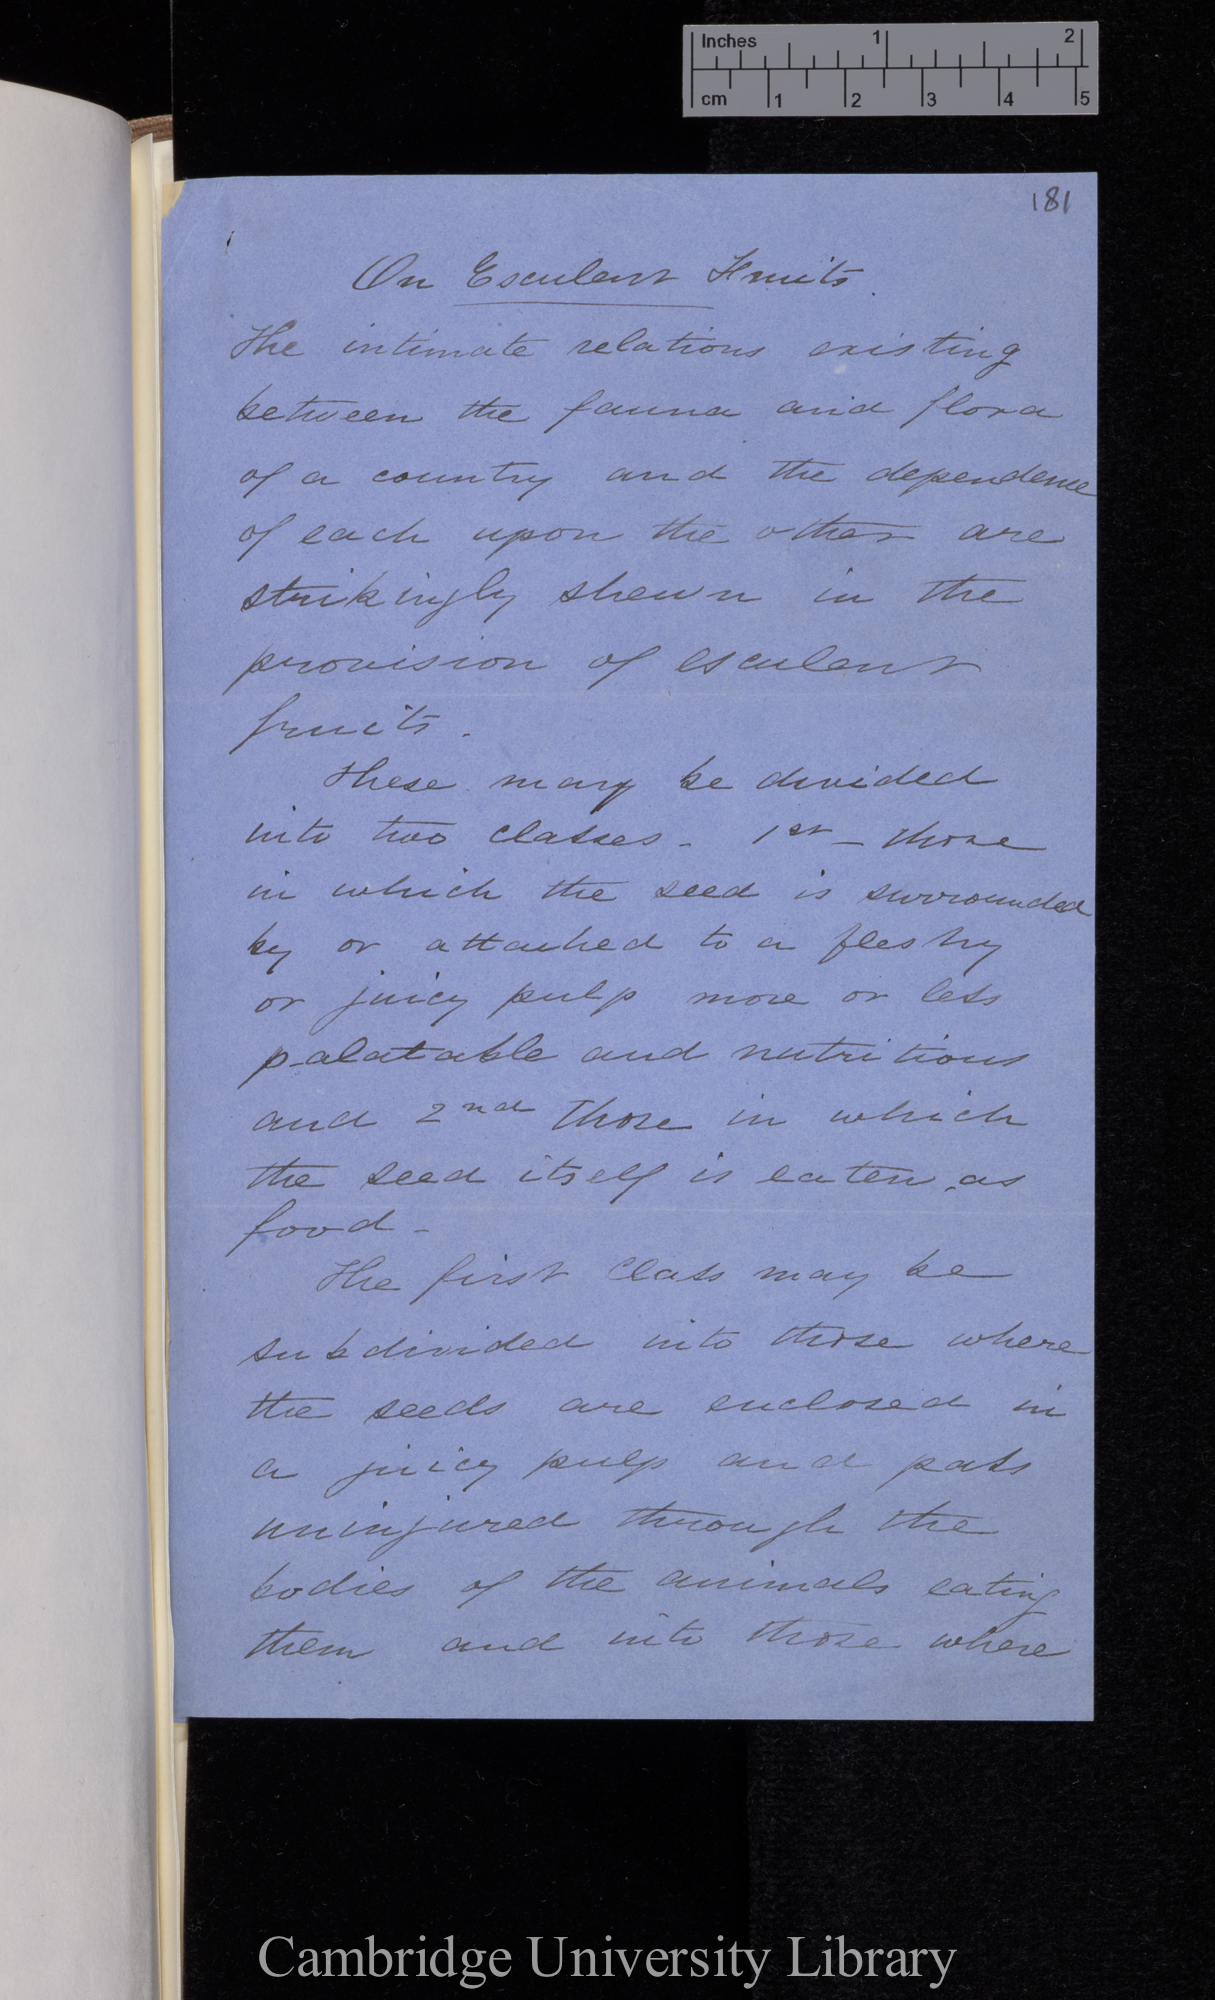 Inches 1 2
cm 1 2 3 4 5
181
On Esculent Fruits.
The intimate relations existing
between the fauna and flora
of a country and the dependence
of each upon the other are
strikingly shewn in the
provision of esculent
fruits.
These may be divided
into two classes - 1st - those
in which the seed is surrounded
by or attached to a fleshy
or juicy pulp more or less
palatable and nutritious
and 2nd Those in which
the seed itself is eaten as
food -
The first class may be
subdivided into those where
the seeds are enclosed in
a juicy pulp and pass
uninjured through the
bodies of the animals eating
them and into those where
Cambridge University Library